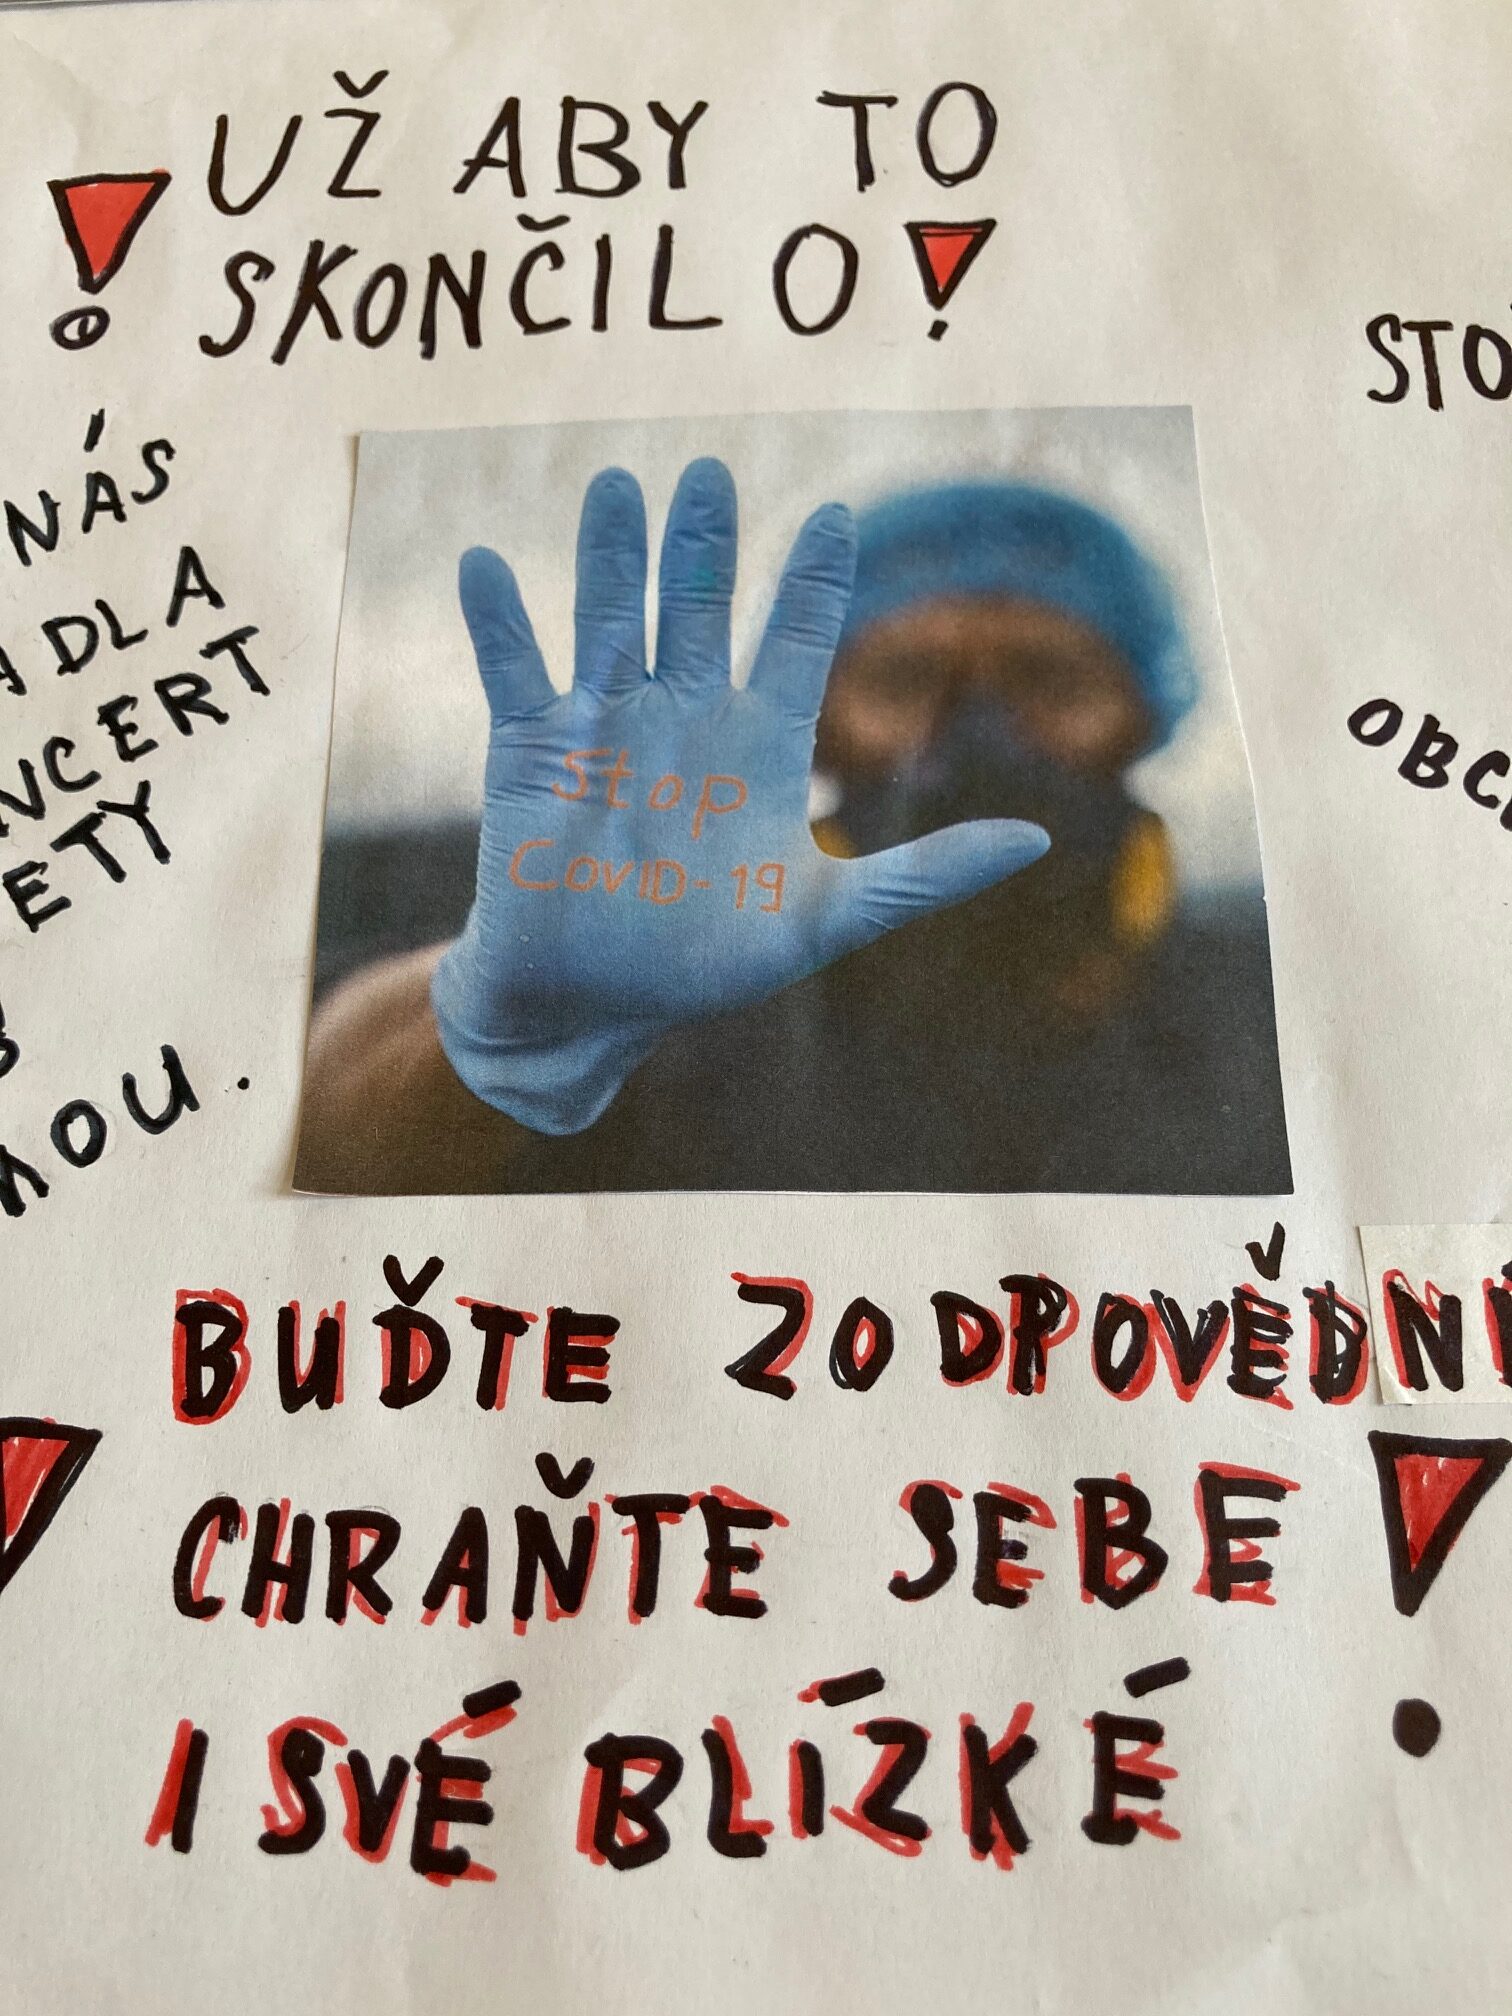 UŽ ABY TO
SKONČILO!
NÁS
DLA
ETY
Stop
COVID-19
BUĎTE ZODPOVĚDNÍ
CHRAŇTE SEBE !
I SVÉ BLÍZKÉ